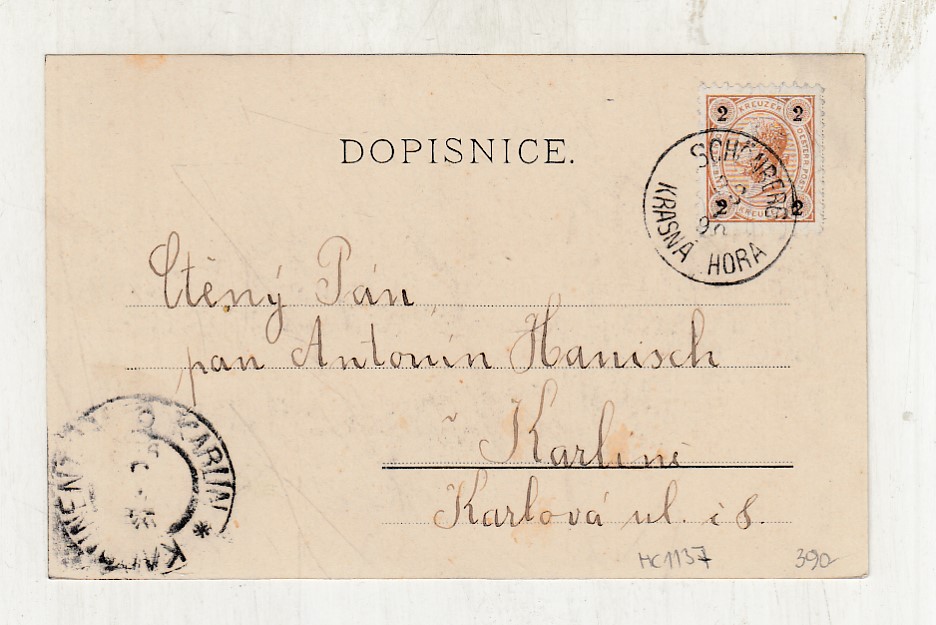 DOPISNICE.
2 KREUZER 2
OESTERR. POST
2 KREUZER 2
SCHÖNBERG
KRASNÁ HORA
Ctěný Pán
pan Antonín Hanisch
v Karlíně
Karlová ul. č 8.
KARLIN *
HC1137 390